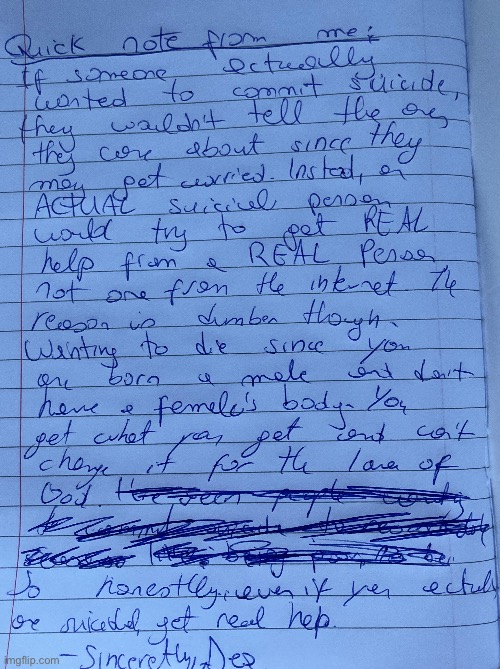 Quick note from me:
If someone actually
wanted to commit suicide,
they wouldn't tell the ones
they care about since they
may get worried. Insted, an
ACTUAL suicidel person
would try to get REAL
help from a REAL Person
not one from the internet. The
reason is dumber though.
Wanting to die since you
are born a male and don't
have a female's body. You
get what you get and can't
change it for the love of
God.
So honestlly, even if you actuly
are suicidal, get real help.
- Sinceretly, Dea
imgflip.com